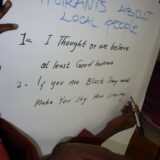 MIGRANTS ABOUT
LOCAL PEOPLE
1= I Thought or we believe
at least Good human
2- If you Are Black They would
Make You shy